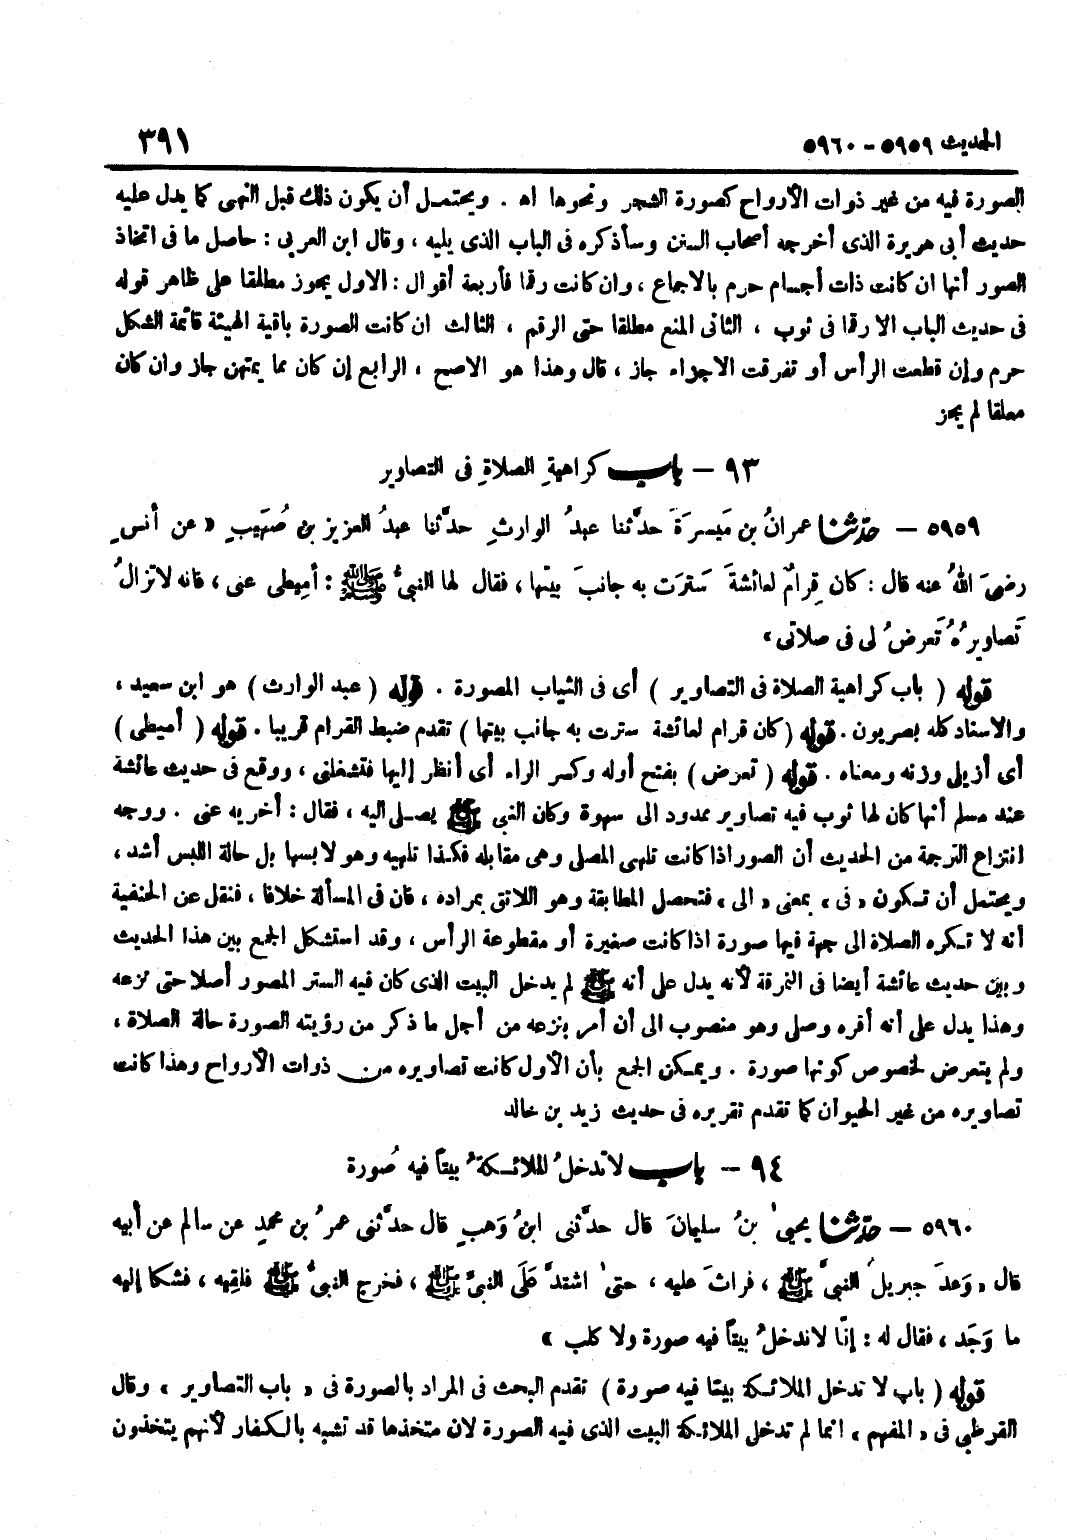 الحديث ٥٩٥٩ - ٥٩٦٠ ٣٩١
الصورة فيه من غير ذوات الأرواح كصورة الشجر ونحوها اه . ويحتمل أن يكون ذلك قبل النهى كما يدل عليه
حديث أبى هريرة الذى أخرجه أصحاب السنن وسأذكره فى الباب الذى يليه ، وقال ابن العربى : حاصل ما فى اتخاذ
الصور أنها ان كانت ذات أجسام حرم بالاجماع ، وان كانت رقما فأربعة أقوال : الاول يجوز مطلقا على ظاهر قوله
فى حديث الباب الا رقما فى ثوب ، الثانى المنع مطلقا حتى الرقم ، الثالث ان كانت الصورة باقية الهيئة قائمة الشكل
حرم وإن قطعت الرأس أو تفرقت الاجزاء جاز ، قال وهذا هو الاصح ، الرابع إن كان مما يمتهن جاز وان كان
معلقا لم يجز
٩٣ - باب كراهيةِ الصلاةِ فى التصاوير
٥٩٥٩ - حدّثنا عمرانُ بن مَيسرَةَ حدَّثنا عبدُ الوارثِ حدَّثنا عبدُ العزيز بن صُهَيبٍ « عن أنسٍ
رضىَ اللهُ عنه قال : كان قِرامٌ لعائشةَ سَترَت به جانبَ بيتها ، فقال لها النبىُّ ﷺ : أمِيطى عنى ، فانه لاتزالُ
تَصاويرُهُ تَعرضُ لى فى صلاتى »
قوله ( باب كراهية الصلاة فى التصاوير ) أى فى الثياب المصورة . قوله ( عبد الوارث ) هو ابن سعيد ،
والاسناد كله بصريون . قوله ( كان قرام لعائشة سترت به جانب بيتها ) تقدم ضبط القرام قريبا . قوله ( أميطى )
أى أزيلى وزنه ومعناه . قوله ( تعرض ) بفتح أوله وكسر الراء أى أنظر إليها فتشغلنى ، ووقع فى حديث عائشة
عند مسلم أنها كان لها ثوب فيه تصاوير ممدود الى سهوة وكان النبى ﷺ يصلى اليه ، فقال : أخريه عنى . ووجه
انتزاع الترجمة من الحديث أن الصور اذا كانت تلهى المصلى وهى مقابله فكذا تلهيه وهو لابسها بل حالة اللبس أشد ،
ويحتمل أن تكون « فى » بمعنى « الى » فتحصل المطابقة وهو اللائق بمراده ، فان فى المسألة خلافا ، فنقل عن الحنفية
أنه لا تكره الصلاة الى جهة فيها صورة اذا كانت صغيرة أو مقطوعة الرأس ، وقد استشكل الجمع بين هذا الحديث
وبين حديث عائشة أيضا فى النمرقة لأنه يدل على أنه ﷺ لم يدخل البيت الذى كان فيه الستر المصور أصلا حتى نزعه
وهذا يدل على أنه أقره وصلى وهو منصوب الى أن أمر بنزعه من أجل ما ذكر من رؤيته الصورة حالة الصلاة ،
ولم يتعرض لخصوص كونها صورة . ويمكن الجمع بأن الأول كانت تصاويره من ذوات الأرواح وهذا كانت
تصاويره من غير الحيوان كما تقدم تقريره فى حديث زيد بن خالد
٩٤ - باب لاتدخلُ الملائكةُ بيتاً فيه صُورة
٥٩٦٠ - حدّثنا يحيىٰ بنُ سليمانَ قال حدَّثنى ابنُ وَهبٍ قال حدَّثنى عمرُ بن محمدٍ عن سالم عن أبيه
قال « وَعدَ جبريلُ النبىَّ ﷺ ، فراثَ عليه ، حتىٰ اشتدَّ عَلَى النبىِّ ﷺ ، فخرج النبىُّ ﷺ فلقِيه ، فشكا إليه
ما وَجَد ، فقال له : إنّا لاندخلُ بيتاً فيه صورة ولا كلب »
قوله ( باب لا تدخل الملائكة بيتا فيه صورة ) تقدم البحث فى المراد بالصورة فى « باب التصاوير » وقال
القرطبى فى « المفهم » انما لم تدخل الملائكة البيت الذى فيه الصورة لان متخذها قد تشبه بالكفار لأنهم يتخذون